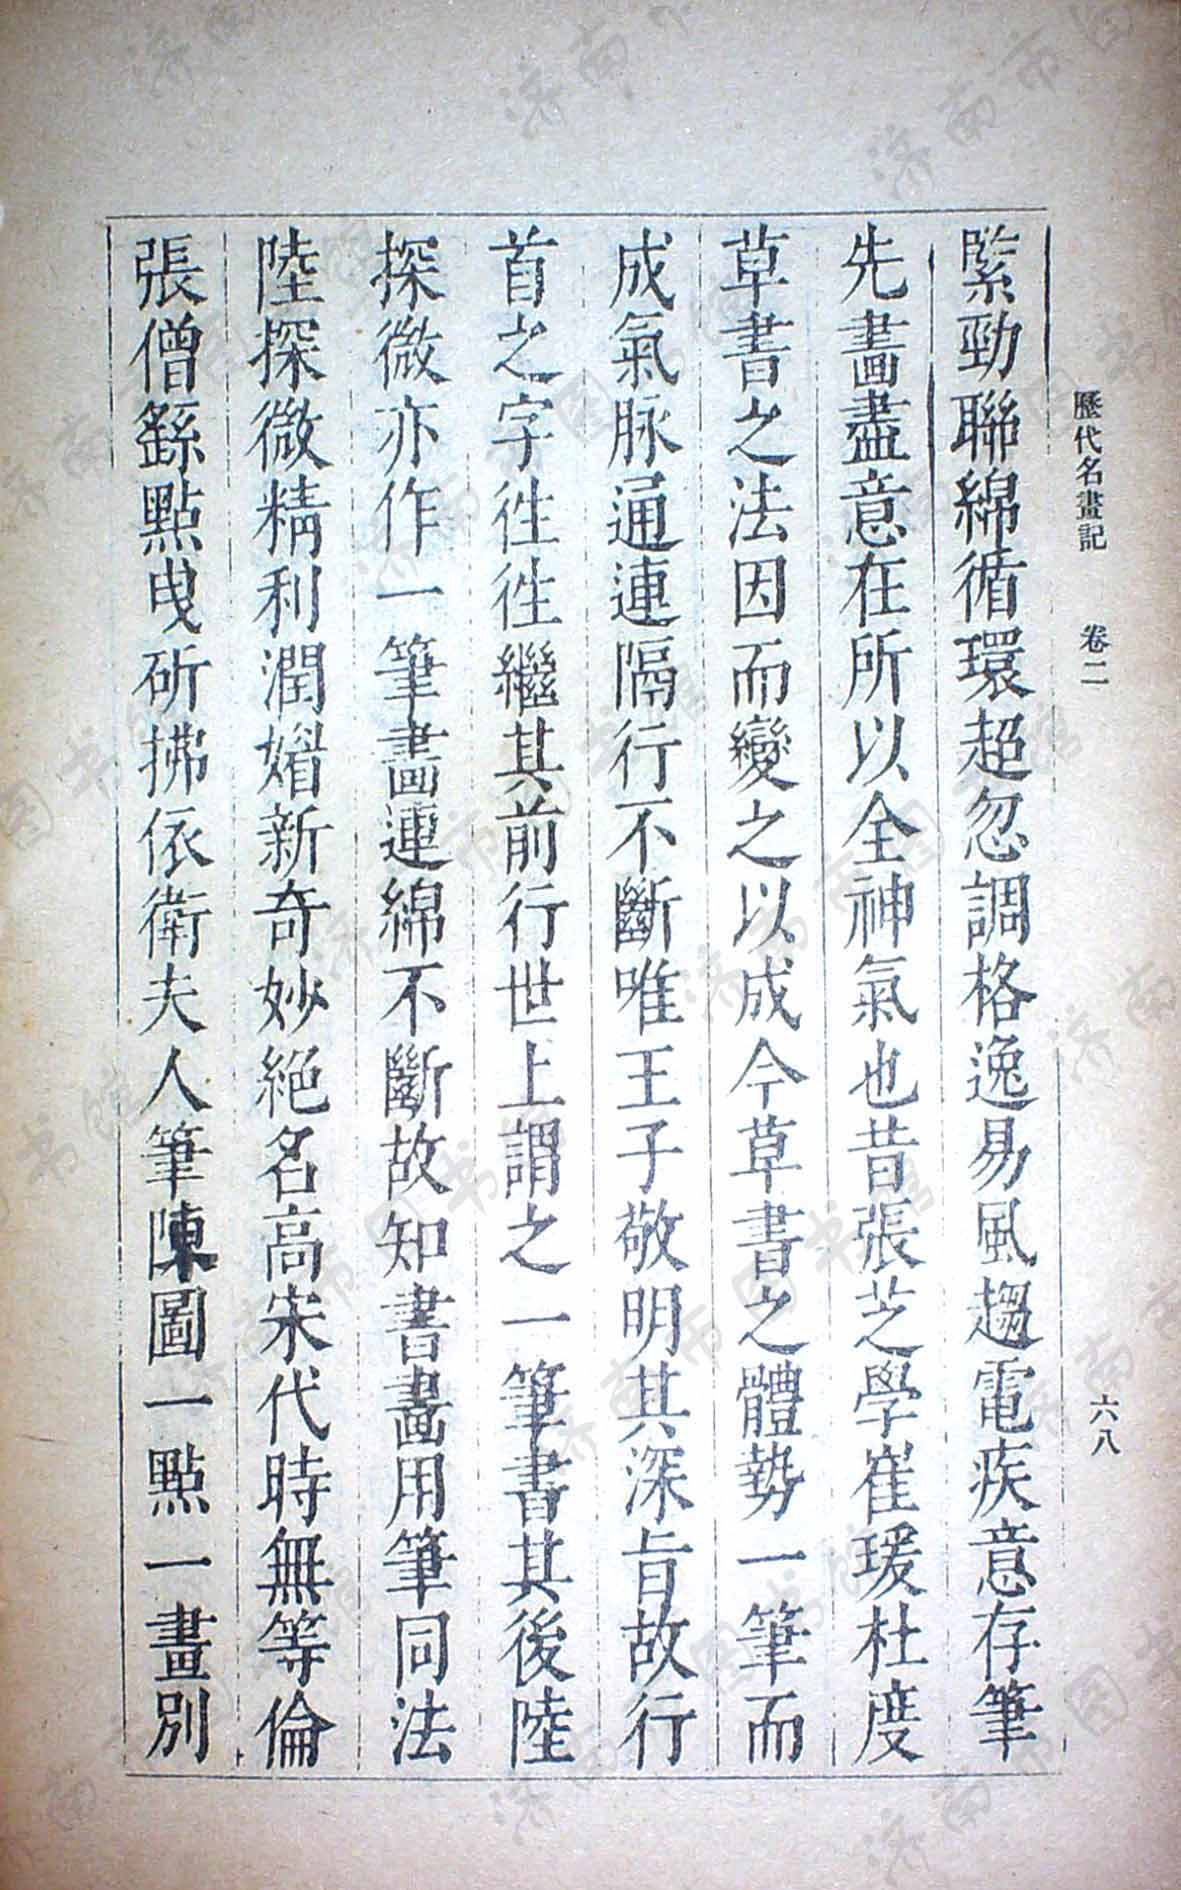 歷代名畫記 卷二 六八
緊勁聯綿循環超忽調格逸易風趨電疾意存筆
先畫盡意在所以全神氣也昔張芝學崔瑗杜度
草書之法因而變之以成今草書之體勢一筆而
成氣脉通連隔行不斷唯王子敬明其深旨故行
首之字徃徃繼其前行世上謂之一筆書其後陸
探微亦作一筆畫連綿不斷故知書畫用筆同法
陸探微精利潤媚新奇妙絕名高宋代時無等倫
張僧繇點曳斫拂依衛夫人筆陳圖一點一畫別